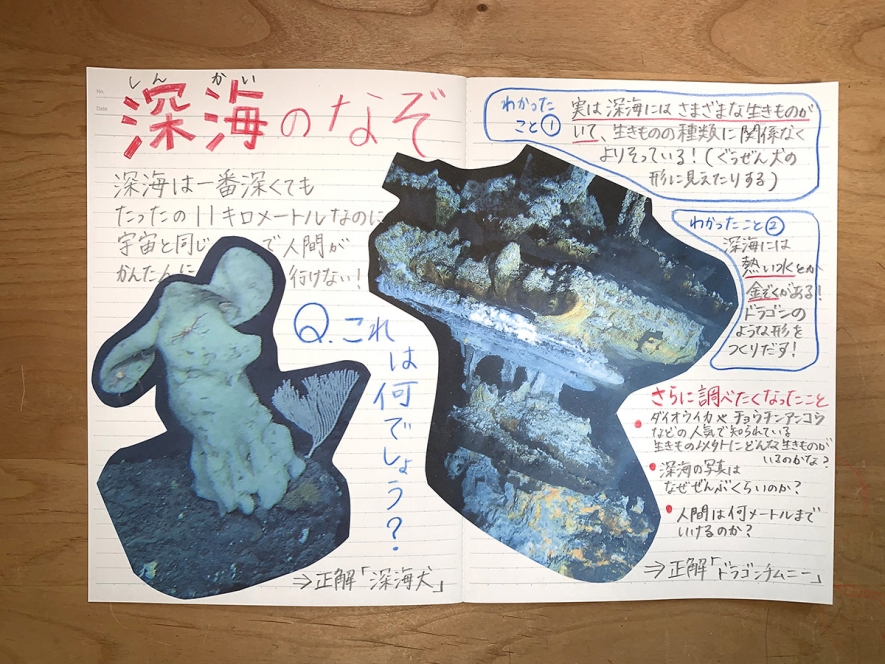 No.
Date
しんかい
深海のなぞ
深海は一番深くても
たったの11キロメートルなのに
宇宙と同じ で人間が
かんたんに 行けない!
Q.これ
は何でしょう?
⇒正解「深海犬」
わかった
こと①
実は深海にはさまざまな生きものが
いて、生きものの種類に関係なく
よりそっている!(ぐうぜん犬の
形に見えたりする)
わかったこと②
深海には
熱い水とか
金ぞくがある!
ドラゴンの
ような形を
つくりだす!
さらに調べたくなったこと
ダイオウイカやチョウチンアンコウ
などの人気で知られている
生きものイメタトにどんな生きものが
いるのかな?
深海の写真は
なぜぜんぶくらいのか?
人間は何メートルまで
いけるのか?
⇒正解「ドラゴンチムニー」